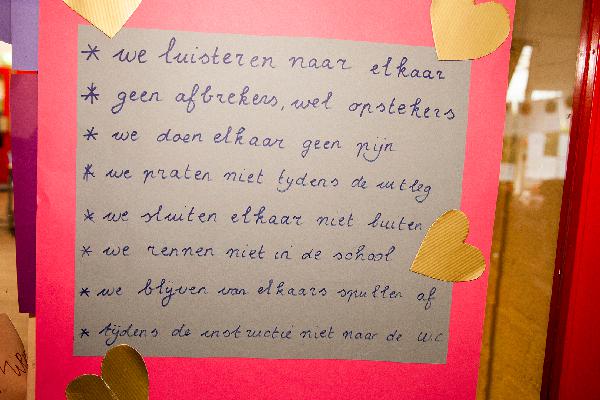 * we luisteren naar elkaar
* geen afbrekers, wel opstekers
* we doen elkaar geen pijn
* we praten niet tijdens de uitleg
* we sluiten elkaar niet buiten
* we rennen niet in de school
* we blijven van elkaars spullen af
* tijdens de instructie niet naar de w.c.